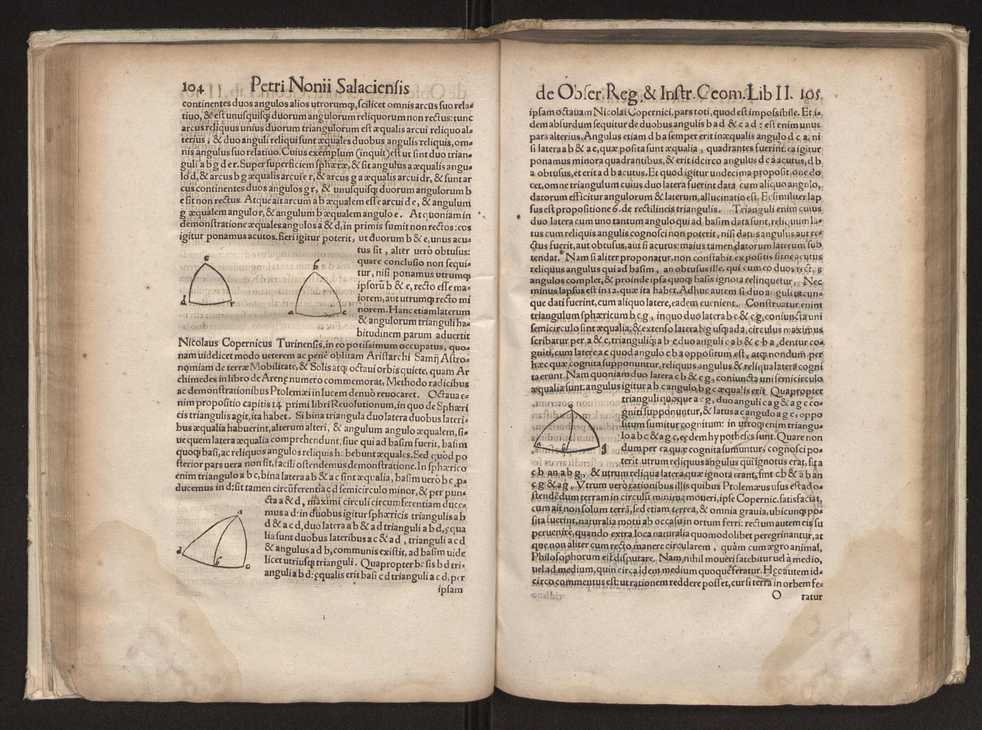 104 Petri Nonii Salaciensis
continentes duos angulos alios utrorumq;, scilicet omnis arcus suo rela-
tiuo, & est unusquisq; duorum angulorum reliquorum non rectus: tunc
arcus reliquus unius duorum triangulorum est æqualis arcui reliquo al-
terius, & duo anguli reliqui sunt æquales duobus angulis reliquis, om-
nis angulus suo relatiuo. Cuius exemplum (inquit) est ut sint duo trian-
guli a b g d e r. Super superficiem sphæræ, & sit angulus a æqualis angu-
lo d, & arcus b g æqualis arcui e r, & arcus g a æqualis arcui d r, & sunt ar
cus continentes duos angulos g r, & unusquisq; duorum angulorum b
e sit non rectus. Atque ait arcum a b æqualem esse arcui d e, & angulum
g æqualem angulo r, & angulum b æqualem angulo e. At quoniam in
demonstratione æquales angulos a & d, in primis sumit non rectos: eos
igitur ponamus acutos. fieri igitur poterit, ut duorum b & e, unus acu
tus sit, alter uero obtusus:
quare conclusio non sequi-
tur, nisi ponamus utrumq;
ipsorũ b & e, recto esse ma-
iorem, aut utrumq; recto mi
norem. Hanc etiam laterum
& angulorum trianguli ha-
bitudinem parum aduertit
Nicolaus Copernicus Turinensis, in eo potissimum occupatus, quo-
nam uidelicet modo ueterem ac penè oblitam Aristarchi Samij Astro-
nomiam de terræ Mobilitate, & Solis atq; octaui orbis quiete, quam Ar
chimedes in libro de Arenę numero commemorat, Methodo radicibus
ac demonstrationibus Ptolemæi in lucem denuò reuocaret. Octaua e-
nim propositio capitis 14 primi libri Reuolutionum, in quo de Sphæri
cis triangulis agit, ita habet. Si bina triangula duo latera duobus lateri-
bus æqualia habuerint, alterum alteri, & angulum angulo æqualem, si-
ue quem latera æqualia comprehendunt, siue qui ad basim fuerit, basim
quoq; basi, ac reliquos angulos reliquis habebunt æquales. Sed quòd po
sterior pars uera non sit, facili ostendemus demonstratione. In sphærico
enim triangulo a b c, bina latera a b & a c sint æqualia, basim uerò b c, p-
ducemus in d: sit tamen circũferentia c d semicirculo minor, & per pun-
cta a & d, maximi circuli circumferentiam duce-
mus a d: in duobus igitur sphæricis triangulis a b
d & a c d, duo latera a b & a d trianguli a b d, ęqua
lia sunt duobus lateribus a c & a d, trianguli a c d
& angulus ad b, communis existit, ad basim uide
licet utriusq; trianguli. Quapropter basis b d tri-
anguli a b d: ęqualis erit basi c d trianguli a c d, pars
ipsam
de Obser. Reg. & Instr. Geom. Lib II. 105
ipsam octauam Nicolai Copernici, pars toti, quod est impossibile. Et i-
dem absurdum sequitur de duobus angulis b a d & c a d: est enim unus
pars alterius. Angulus etiam d b a semper erit inæqualis angulo d c a, ni
si latera a b & a c, quæ posita sunt æqualia, quadrantes fuerint: ea igitur
ponamus minora quadrantibus, & erit idcirco angulus d c a acutus, d b
a obtusus, et erit a d b acutus. Et quod igitur undecima propositione do
cet, omne triangulum cuius duo latera fuerint data cum aliquo angulo,
datorum efficitur angulorum & laterum, allucinatio est. Et similiter lap
sus est propositione 6. de rectilineis triangulis. Trianguli enim cuius
duo latera cum uno tantum angulo qui ad basim data sunt, reliquum la-
tus cum reliquis angulis cognosci non poterit, nisi datus angulus aut re-
ctus fuerit, aut obtusus, aut si acutus: maius tamen datorum laterum sub
tendat. Nam si aliter proponatur, non constabit ex positis sitne acutus
reliquus angulus qui ad basim, an obtusus ille, qui cum eo duos rectos
angulos complet, & proinde ipsa quoq; basis ignota relinquetur. Nec
minus lapsus est in 12. quæ ita habet. Adhuc autem si duo anguli utcun-
que dati fuerint, cum aliquo latere, eadem euenient. Construatur enim
triangulum sphæricum b c g, in quo duo latera b c & c g, coniuncta uni
semicirculo sint æqualia, & extenso latere b g usq; ad a, circulus maximus
scribatur per a & c, trianguliq; a b c duo anguli c a b & c b a, dentur co-
gniti, cum latere a c quod angulo c b a oppositum est, atq; nondum per
hæc quæ cognita supponuntur, reliquus angulus & reliqua latera cogni
ta erunt. Nam quoniam duo latera c b & c g, coniuncta uni semicirculo
æqualia sunt. angulus igitur a b c angulo b g c æqualis erit Quapropter
trianguli quoque a c g, duo anguli c a g & a g c co-
gniti supponuntur, & latus a c angulo a g c, oppo
situm sumitur cognitum: in utroq; enim triangu-
lo a b c & a g c, eędem hypotheses sunt. Quare non
dum per ea quæ cognita sumuntur, cognosci po-
terit utrum reliquus angulus qui ignotus erat, sit a
c b an a b g, & utrum reliqua latera quæ ignota erant, sint c b & a b an
c g & a g. Vtrum uerò rationibus illis quibus Ptolemæus usus est ad o-
stendẽdum terram in circulũ minimè moueri, ipse Copernic. satisfaciat,
cum ait non solum terrã, sed etiam terrea, & omnia grauia, ubicunq; po
sita fuerint, naturali motu ab occasu in ortum ferri: rectum autem eis su
peruenire, quando extra loca naturalia quomodolibet peregrinantur, at
que non aliter cum recto, manere circularem, quàm cum ægro animal,
Philosophorum est disputare. Nam nihil moueri fatebitur uel à medio,
uel ad medium, quin circa idem medium quoque feratur. Hęc autem id-
circo commentus est: ut rationem reddere posset, cur si terra in orbem fe-
O ratur